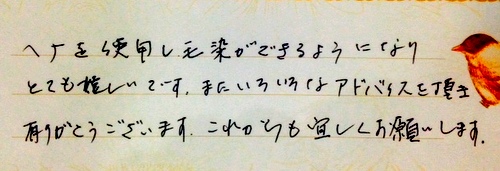 ヘナを使用し毛染ができるようになり
とても嬉しいです。またいろいろなアドバイスを頂き
有りがとうございます。これからも宜しくお願いします。